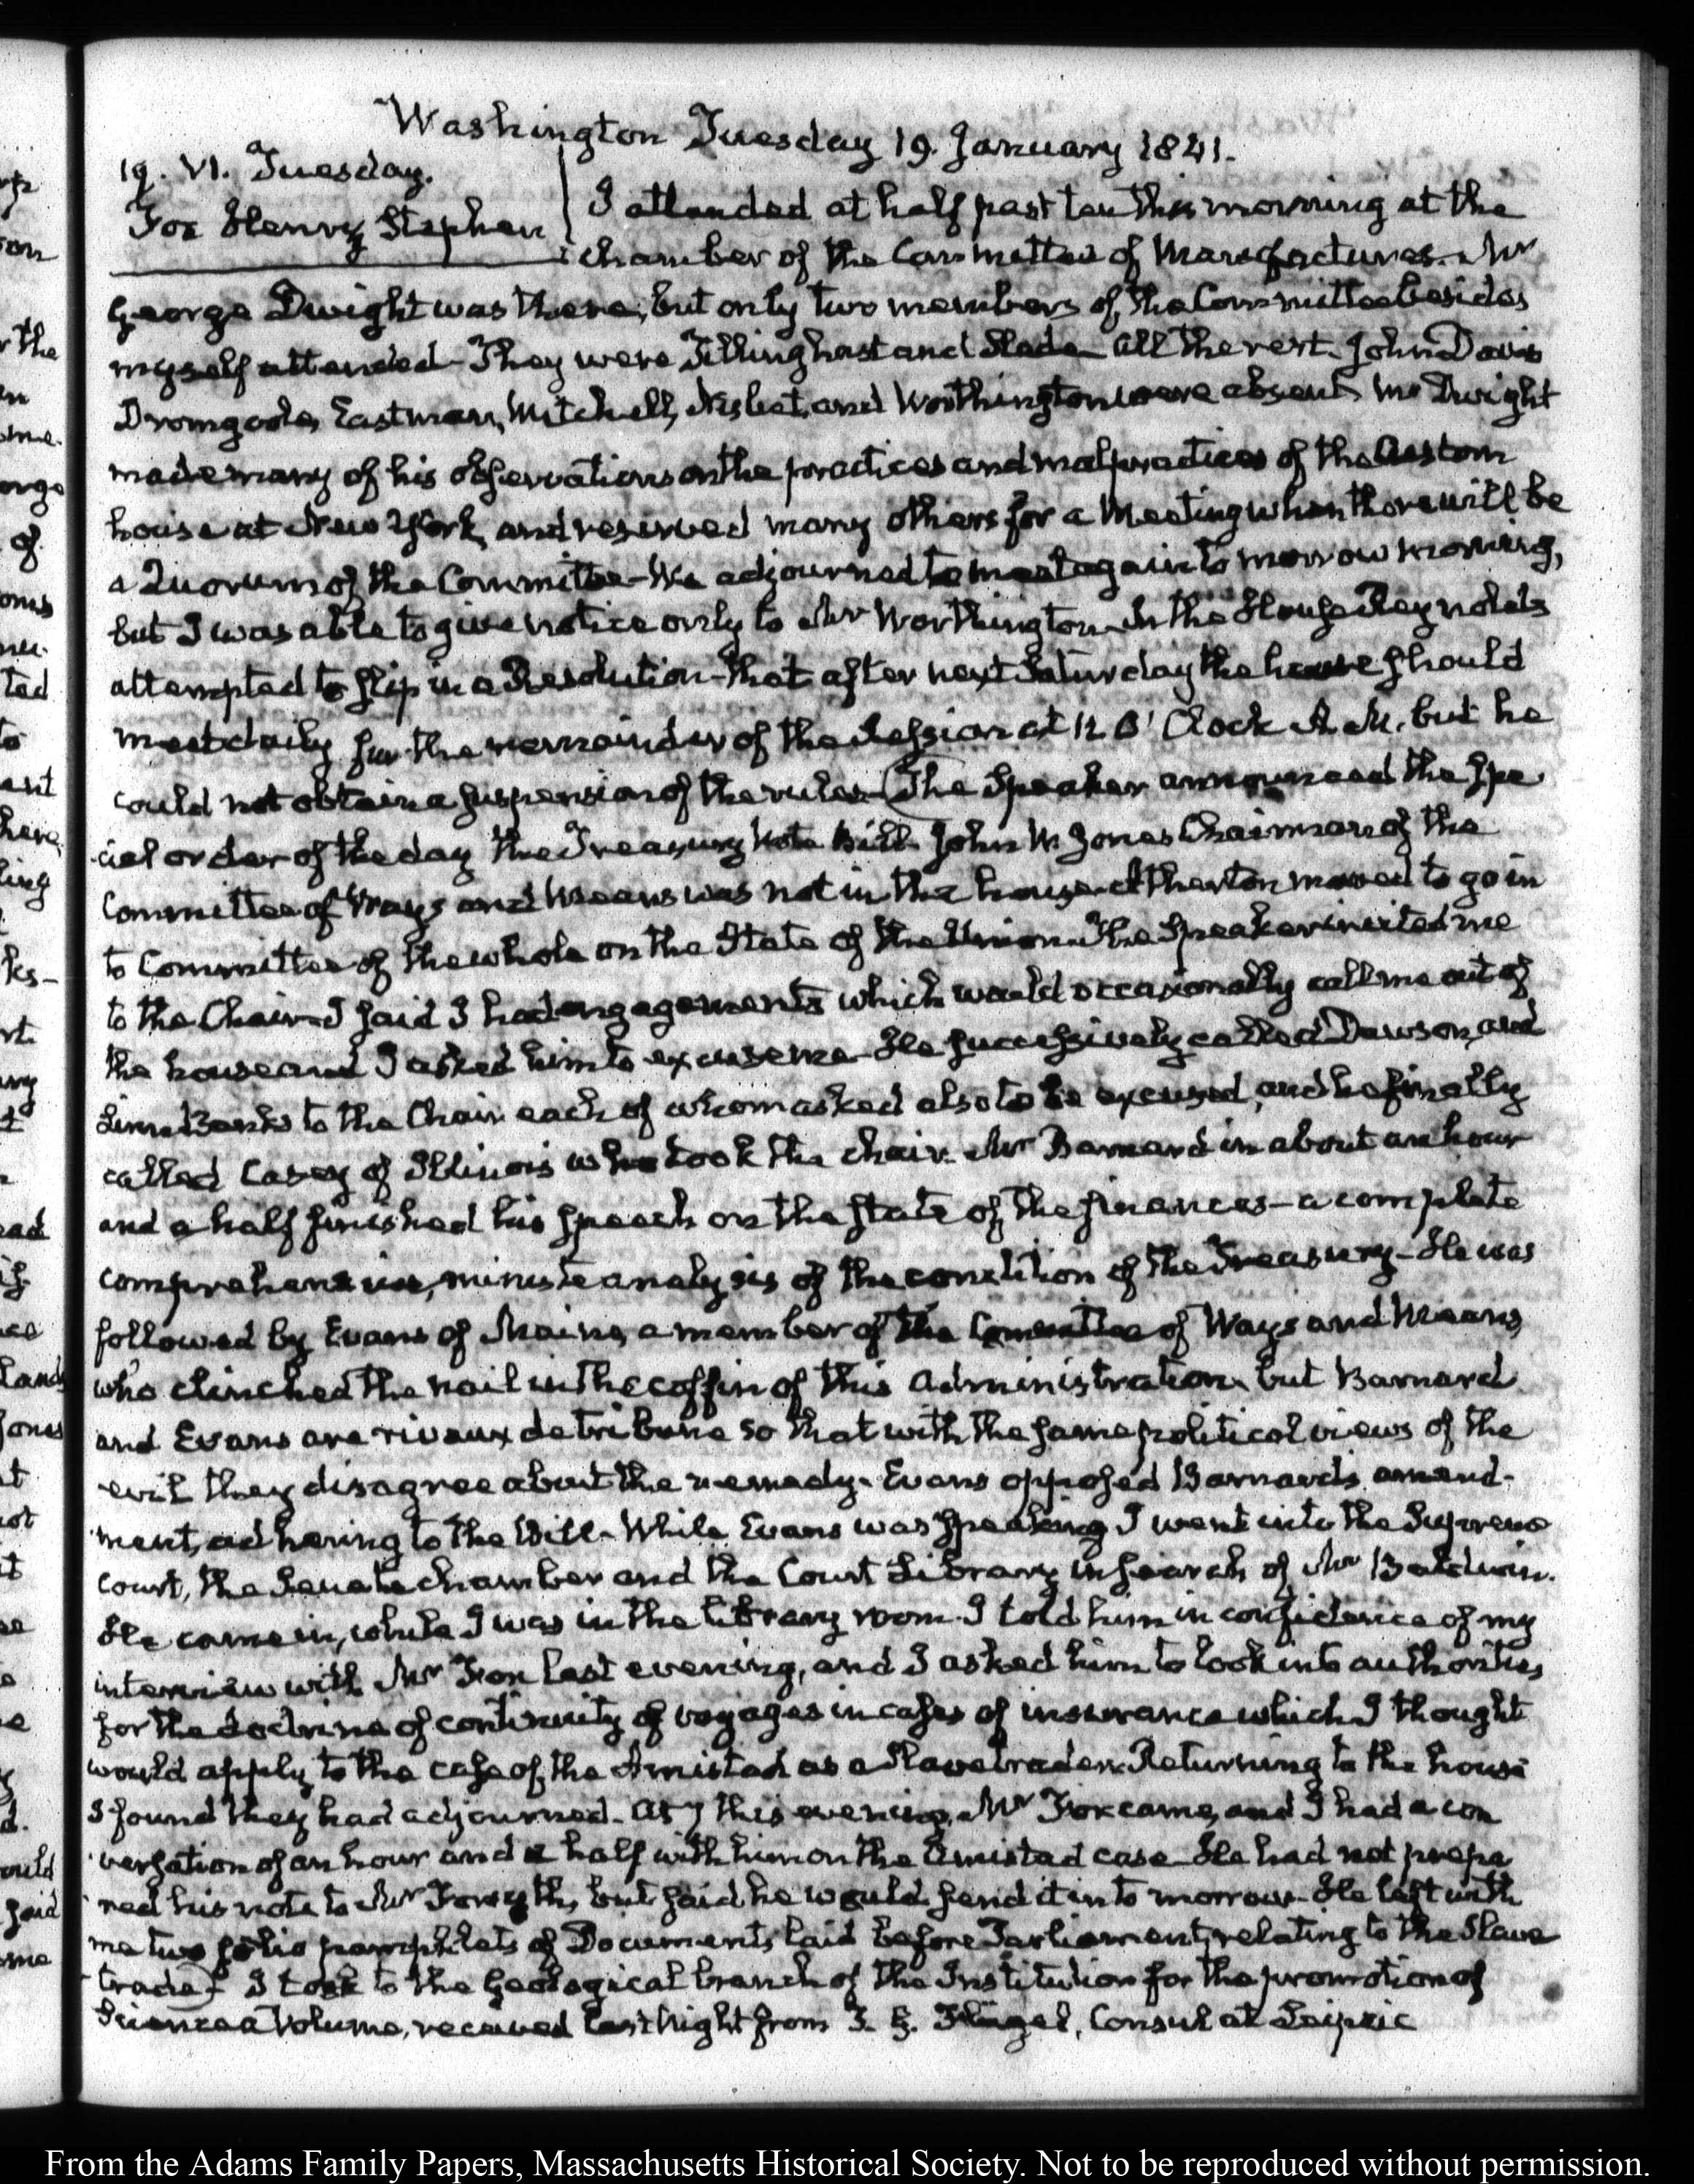 Washington Tuesday 19. January 1841.
19. VI. Tuesday.
Fox Henry Stephen
I attended at half past ten this morning at the
chamber of the Committee of Manufactures. Mr
George Dwight was there; but only two members of the Committee besides
myself attended — They were Tillinghast and Slade — All the rest. John Davis
Dromgoole, Eastman, Mitchell, Nisbet, and Worthington were absent. Mr Dwight
made many of his observations on the practices and malpractices of the Custom
house at New York, and reserved many others for a Meeting when there will be
a Quorum of the Committee — We adjourned to meet again to morrow morning,
but I was able to give notice only to Mr Worthington — In the House Reynolds
attempted to slip in a Resolution — that after next Saturday the house should
meet daily for the remainder of the Session at 12 O'Clock A.M. but he
could not obtain a suspension of the rules — (The Speaker announced the spe
cial order of the day the Treasury Note Bill. John W. Jones Chairman of the
Committee of Ways and Means was not in the house — Atherton moved to go in
to Committee of the whole on the State of the Union. The Speaker invited me
to the Chair — I said I had engagements which would occasionally call me out of
the house and I asked him to excuse me — He successively called Dawson, and
Linn Banks to the Chair each of whom asked also to be excused, and he finally
called Casey of Illinois who took the chair. Mr Barnard in about an hour
and a half finished his speech on the state of the finances — a complete
comprehensive, minute analysis of the condition of the Treasury — He was
followed by Evans of Maine, a member of the Committee of Ways and Means,
who clinched the nail in the coffin of this Administration. but Barnard
and Evans are rivaux de tribune so that with the same political views of the
evil they disagree about the remedy. Evans opposed Barnard's amend-
ment, adhering to the Bill. While Evans was speaking I went into the Supreme
Court, the Senate chamber and the Court Library in search of Mr Baldwin.
He came in, while I was in the library room. I told him in confidence of my
interview with Mr Fox last evening, and I asked him to look into authorities
for the doctrine of continuity of voyages in cases of insurance which I thought
would apply to the case of the Amistad as a Slave trader. Returning to the house
I found they had adjourned. At 7 this evening, Mr Fox came, and I had a con
versation of an hour and a half with him on the Amistad case — He had not prepa
red his note to Mr Forsyth, but said he would send it in to morrow. He left with
me two folio pamphlets of Documents, laid before Parliament, relating to the Slave
trade) — I took to the Geological branch of the Institution for the promotion of
Science a Volume, received last Night from J. G. Flügel, Consul at Leipzic
From the Adams Family Papers, Massachusetts Historical Society. Not to be reproduced without permission.